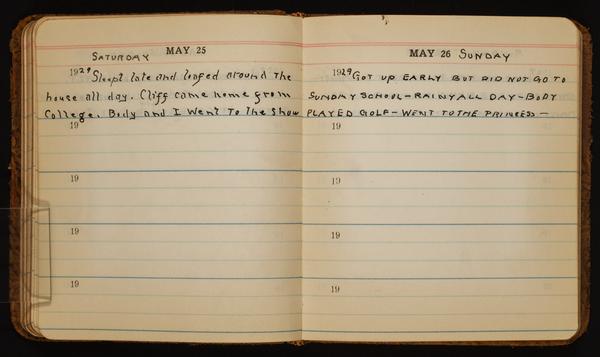 SATURDAY MAY 25
1929 Sleept late and loafed around the
house all day. Cliff came home from
College. Body and I Went To the Show
19
19
19
19
MAY 26 SUNDAY
1929 GOT UP EARLY BUT DID NOT GO TO
SUNDAY SCHOOL - RAINY ALL DAY - BODY
PLAYED GOLF - WENT TO THE PRINCESS -
19
19
19
19